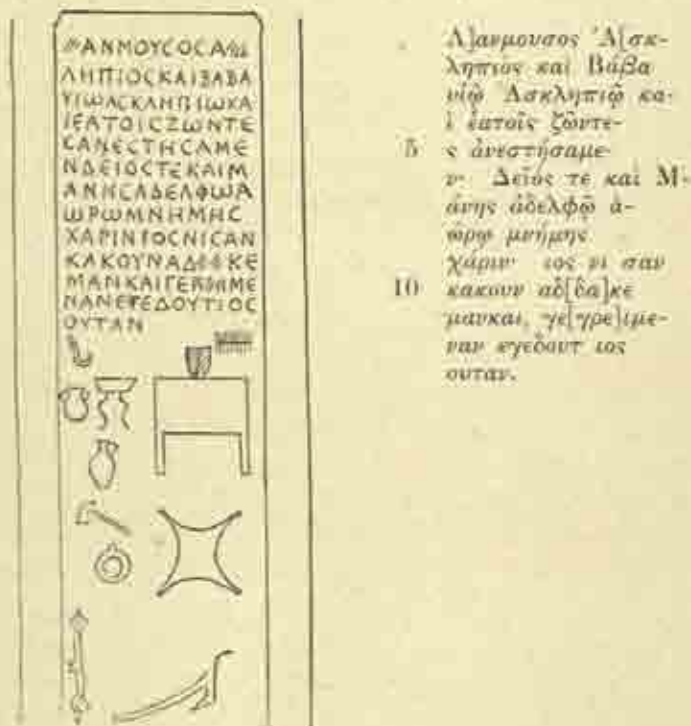 ΑΝΜΟΥCΟCΑ
ΛΗΠΙΟCΚΑΙΒΑΒΑ
ΥΙΩΑCΚΛΗΠΙΩΚΑ
ΙΕΑΤΟΙCΖΩΝΤΕ
CΑΝΕCΤΗCΑΜΕ
ΝΔΕΙΟCΤΕΚΑΙΜ
ΑΝΗCΑΔΕΛΦΩΑ
ΩΡΩΜΝΗΜΗC
ΧΑΡΙΝΙΟCΝΙCΑΝ
ΜΑΝΚΑΙΓΕ
ΝΑΝΕΓΕΔΟΥΤΙΟC
ΟΥΤΑΝ
Λ]ανμουσος Ἀ[σκ-
ληπιος καὶ Βάβα
υἱῷ Ἀσκληπιῷ κα-
ὶ ἑατοῖς ζῶντε-
5 ς ἀνεστήσαμε-
ν· Δεῖός τε καὶ Μ-
άνης ἀδελφῷ ἀ-
ώρῳ μνήμης
χάριν· ιος νι σαν
10 κακουν αδ[δα]κε
μανκαι, γε[γρε]ιμε-
ναν εγεδουτ ιος
ουταν.